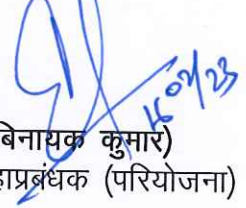 16/02/23
बिनायक कुमार)
हाप्रबंधक (परियोजना)